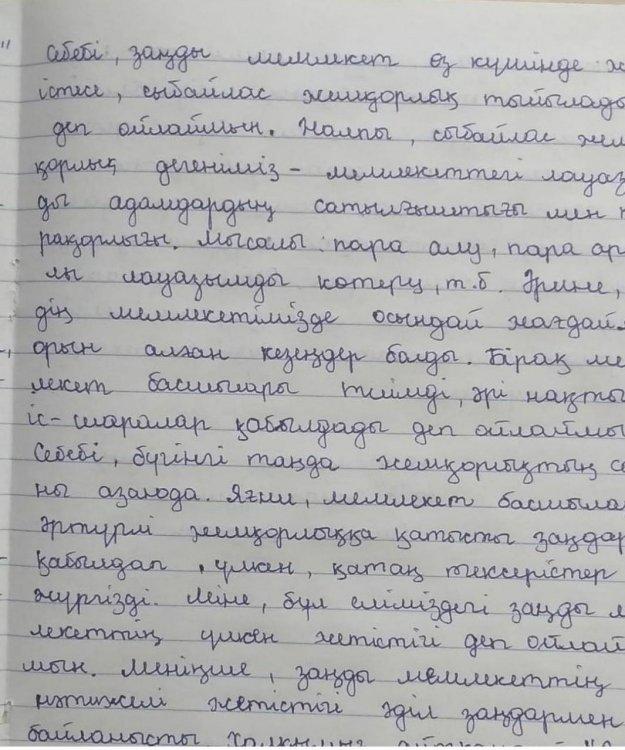 себебі, заңды мемлекет өз күшінде ж
істесе, сыбайлас жемқорлық тыйылады
деп ойлаймын. Жалпы, сыбайлас жем
қорлық дегеніміз - мемлекеттегі лауаз
ды адамдардың сатылғыштығы мен п
рақорлығы. Мысалы: пара алу, пара ар
лы лауазымды көтеру, т.б. Әрине,
дің мемлекетімізде осындай жағдай
орын алған кезеңдер болды. Бірақ ме
млекет басшылары тиімді, әрі нақты
іс-шаралар қабылдады деп ойлаймы
Себебі, бүгінгі таңда жемқорлықтың с
ны азаюда. Яғни, мемлекет басшыла
әртүрлі жемқорлыққа қатысты заңдар
қабылдап, үлкен, қатаң тексерістер
жүргізді. Міне, бұл еліміздегі заңды м
лекеттің үлкен жетістігі деп ойлай
мын. Меніңше, заңды мемлекеттің
нәтижелі жетістігі әділ заңдармен
байланысты.